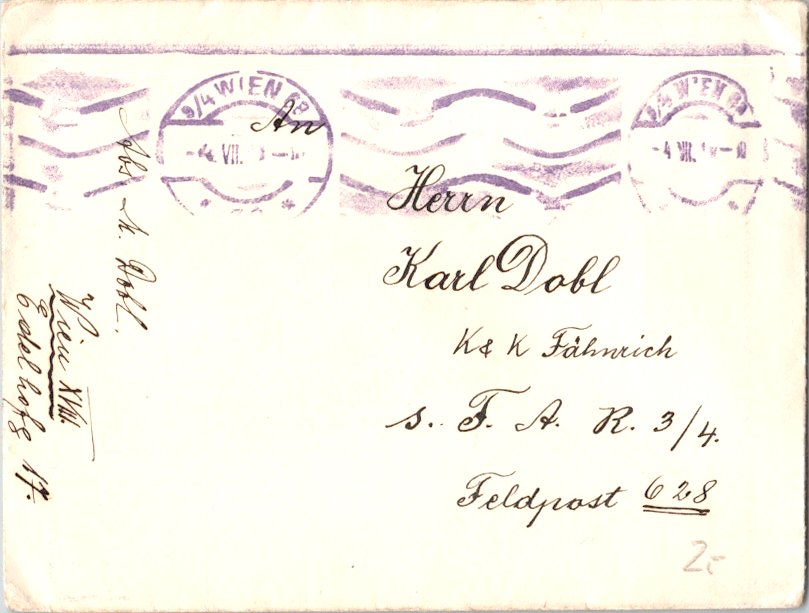 9/4 WIEN 68
VII.
9/4 WIEN 68
- 4 VIII.
An
Herrn
Karl Dobl
K & K Fähnrich
s. F. A. R. 3/4.
Feldpost 628
Abs. Dobl.
Wien XVIII.
Edelhofg 17.
2.-